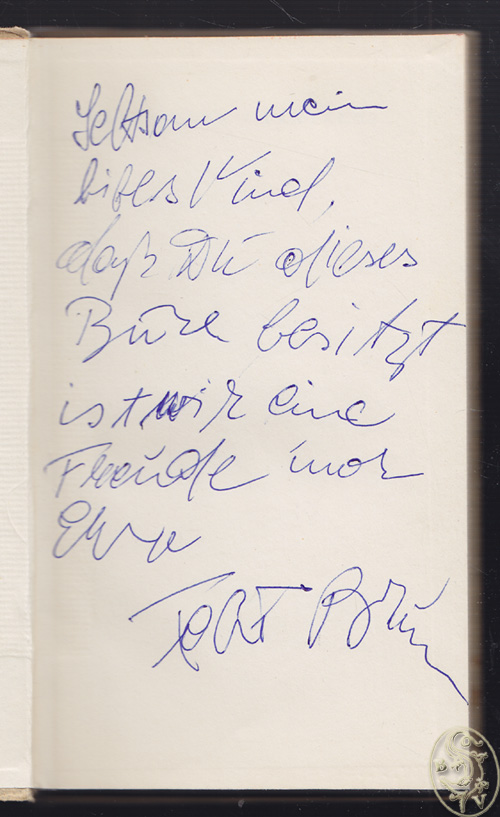 Seltsam mein
liebes Kind,
daß Du dieses
Buch besitzt
ist mir eine
Freude und
Ehre
Bru